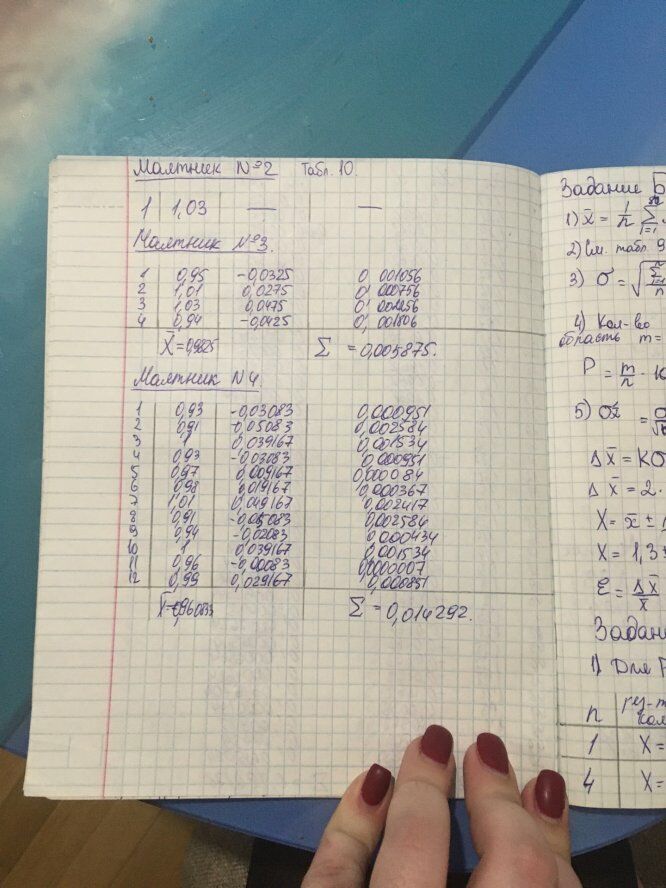 Маятник №2 Табл. 10.
1 1,03 — —
Маятник №3.
1 0,95 -0,0325 0 001056
2 1,01 0,0275 0' 000756
3 1,03 0,0475 0' 002256
4 0,94 -0,0425 0, 001806
X̄ = 0,9825 Σ = 0,005875.
Маятник №4.
1 0,93 -0,03083 0,000951
2 0,91 -0,05083 0,002584
3 1 0,039167 0,001534
4 0,93 -0,03083 0,000951
5 0,97 0,009167 0,000084
6 0,98 0,019167 0,000367
7 1,01 0,049167 0,002417
8 0,91 -0,05083 0,002584
9 0,94 -0,02083 0,000434
10 1 0,039167 0,001534
11 0,96 -0,00083 0,0000007
12 0,99 0,029167 0,000851
X̄ = 0,960833 Σ = 0,014292.
Задание Б
1) x̄ = 1/n Σ i=1
2) см. табл. 9
3) σ = √ Σ i=1 n
4) Кол-во
область m =
P = m/n · 10
5) σx̄ =
Δ x̄ = Kσ
Δ x̄ = 2.
X = x̄ ±
X = 1,33
ε = Δx̄/x̄
Задани
1) Для
n
1 X =
4 X =